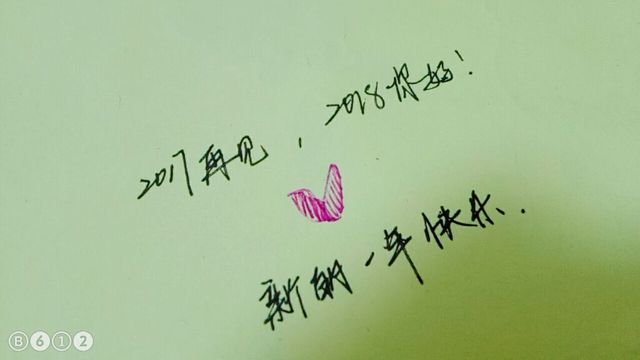 2017再见，2018你好！
新的一年快乐.
B612